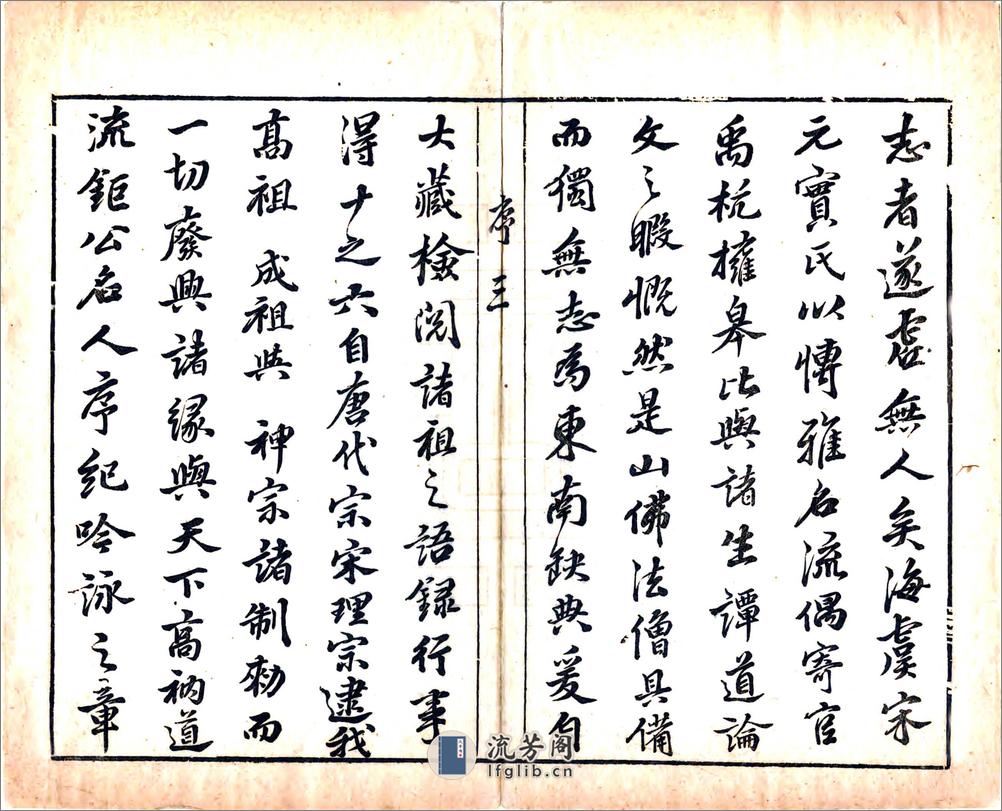 志者遂虛無人矣海虞宋
元實氏以博雅名流偶寄官
禹杭擁皋比與諸生譚道論
文之暇慨然是山佛法僧具備
而獨無志為東南缺典爰自
序 三
大藏檢閱諸祖之語録行事
得十之六自唐代宗宋理宗逮我
髙祖 成祖與 神宗諸制勅而
一切廢興諸緣與天下高衲道
流鉅公名人序紀吟詠之章
流芳阁
lfglib.cn